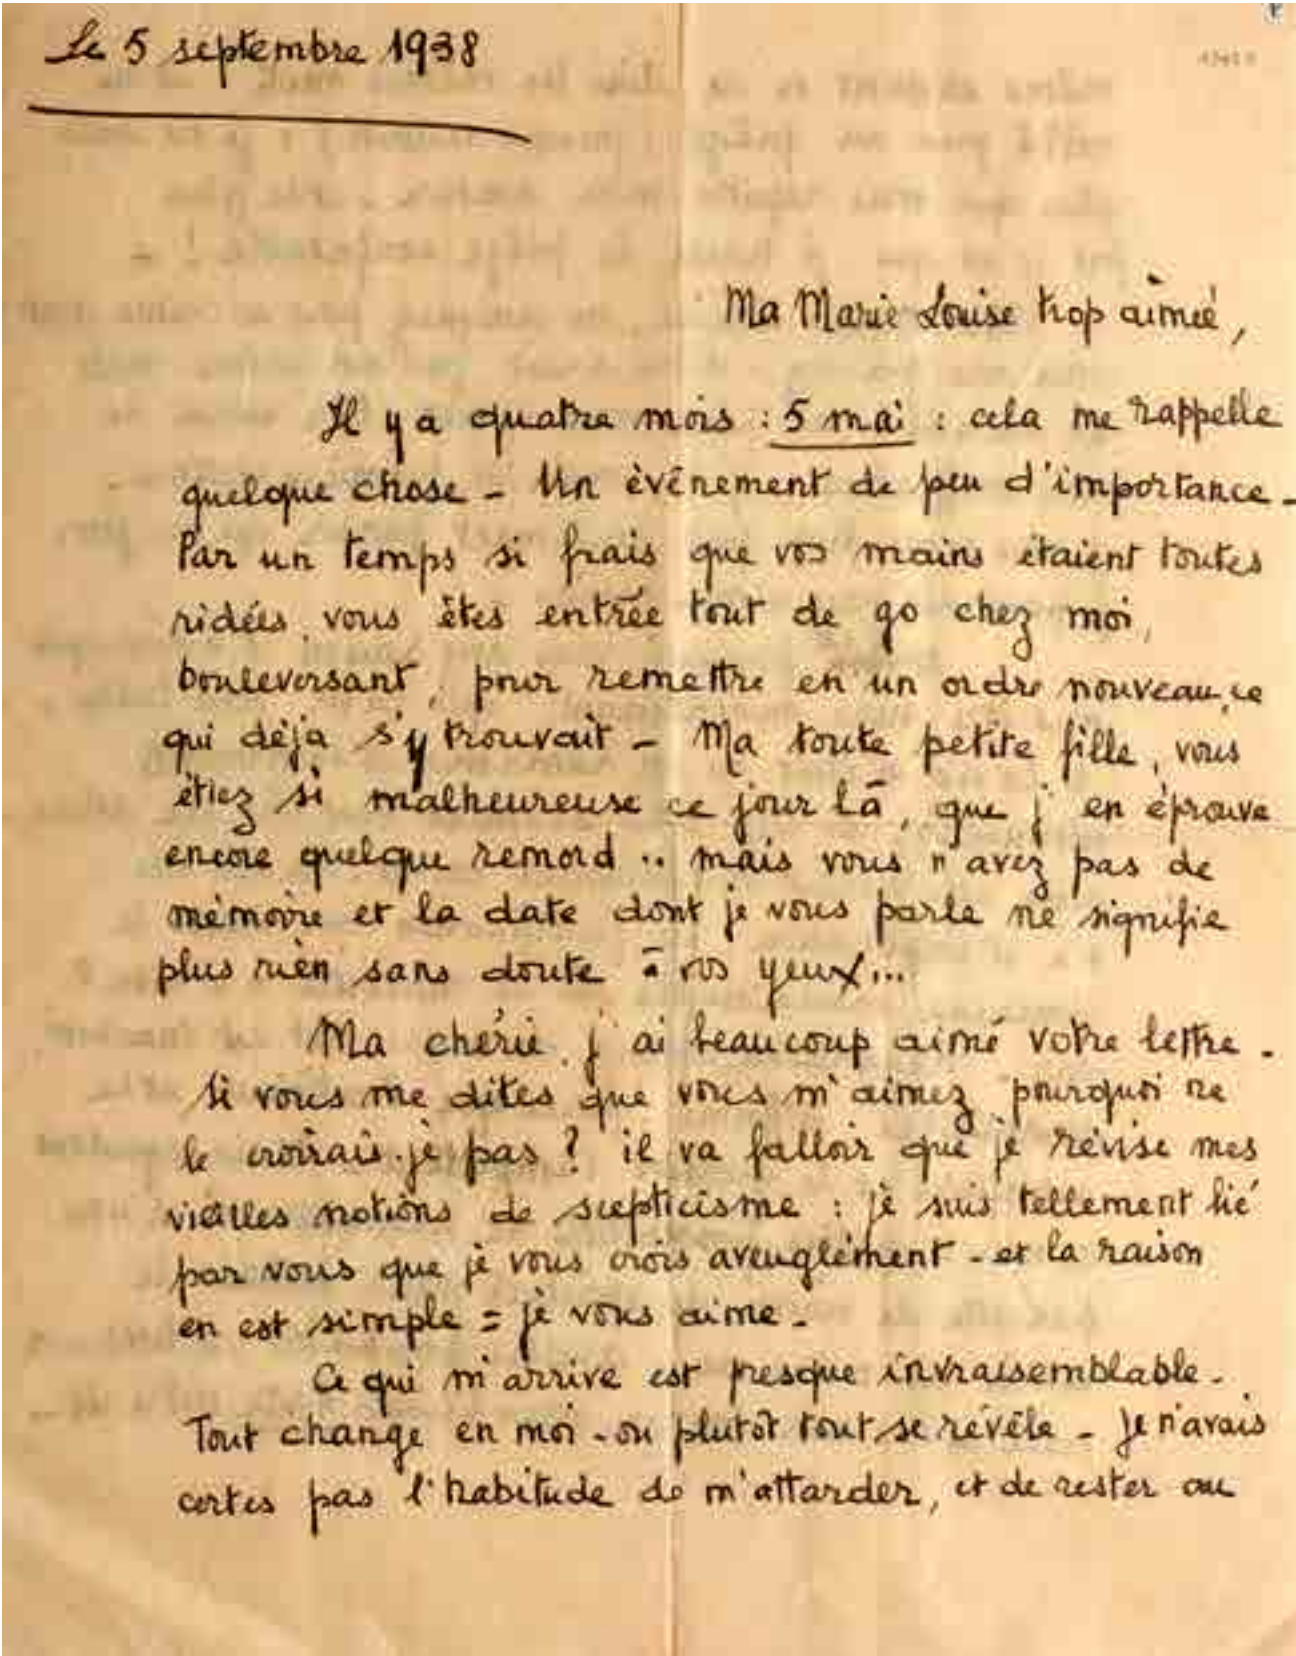 Le 5 septembre 1938
Ma Marie Louise trop aimée,
Il y a quatre mois : 5 mai : cela me rappelle
quelque chose - Un évènement de peu d'importance -
Par un temps si frais que vos mains étaient toutes
ridées, vous êtes entrée tout de go chez moi,
bouleversant, pour remettre en un ordre nouveau, ce
qui déja s'y trouvait - Ma toute petite fille, vous
étiez si malheureuse ce jour là, que j'en éprouve
encore quelque remord .. mais vous n'avez pas de
mémoire et la date dont je vous parle ne signifie
plus rien sans doute à vos yeux...
Ma chérie, j'ai beaucoup aimé votre lettre.
Si vous me dites que vous m'aimez, pourquoi ne
le croirais-je pas ? il va falloir que je révise mes
vieilles notions de scepticisme : je suis tellement lié
par vous que je vous crois aveuglément - et la raison
en est simple = je vous aime -
Ce qui m'arrive est presque invraisemblable -
Tout change en moi - ou plutôt tout se révèle - Je n'avais
certes pas l'habitude de m'attarder, et de rester au